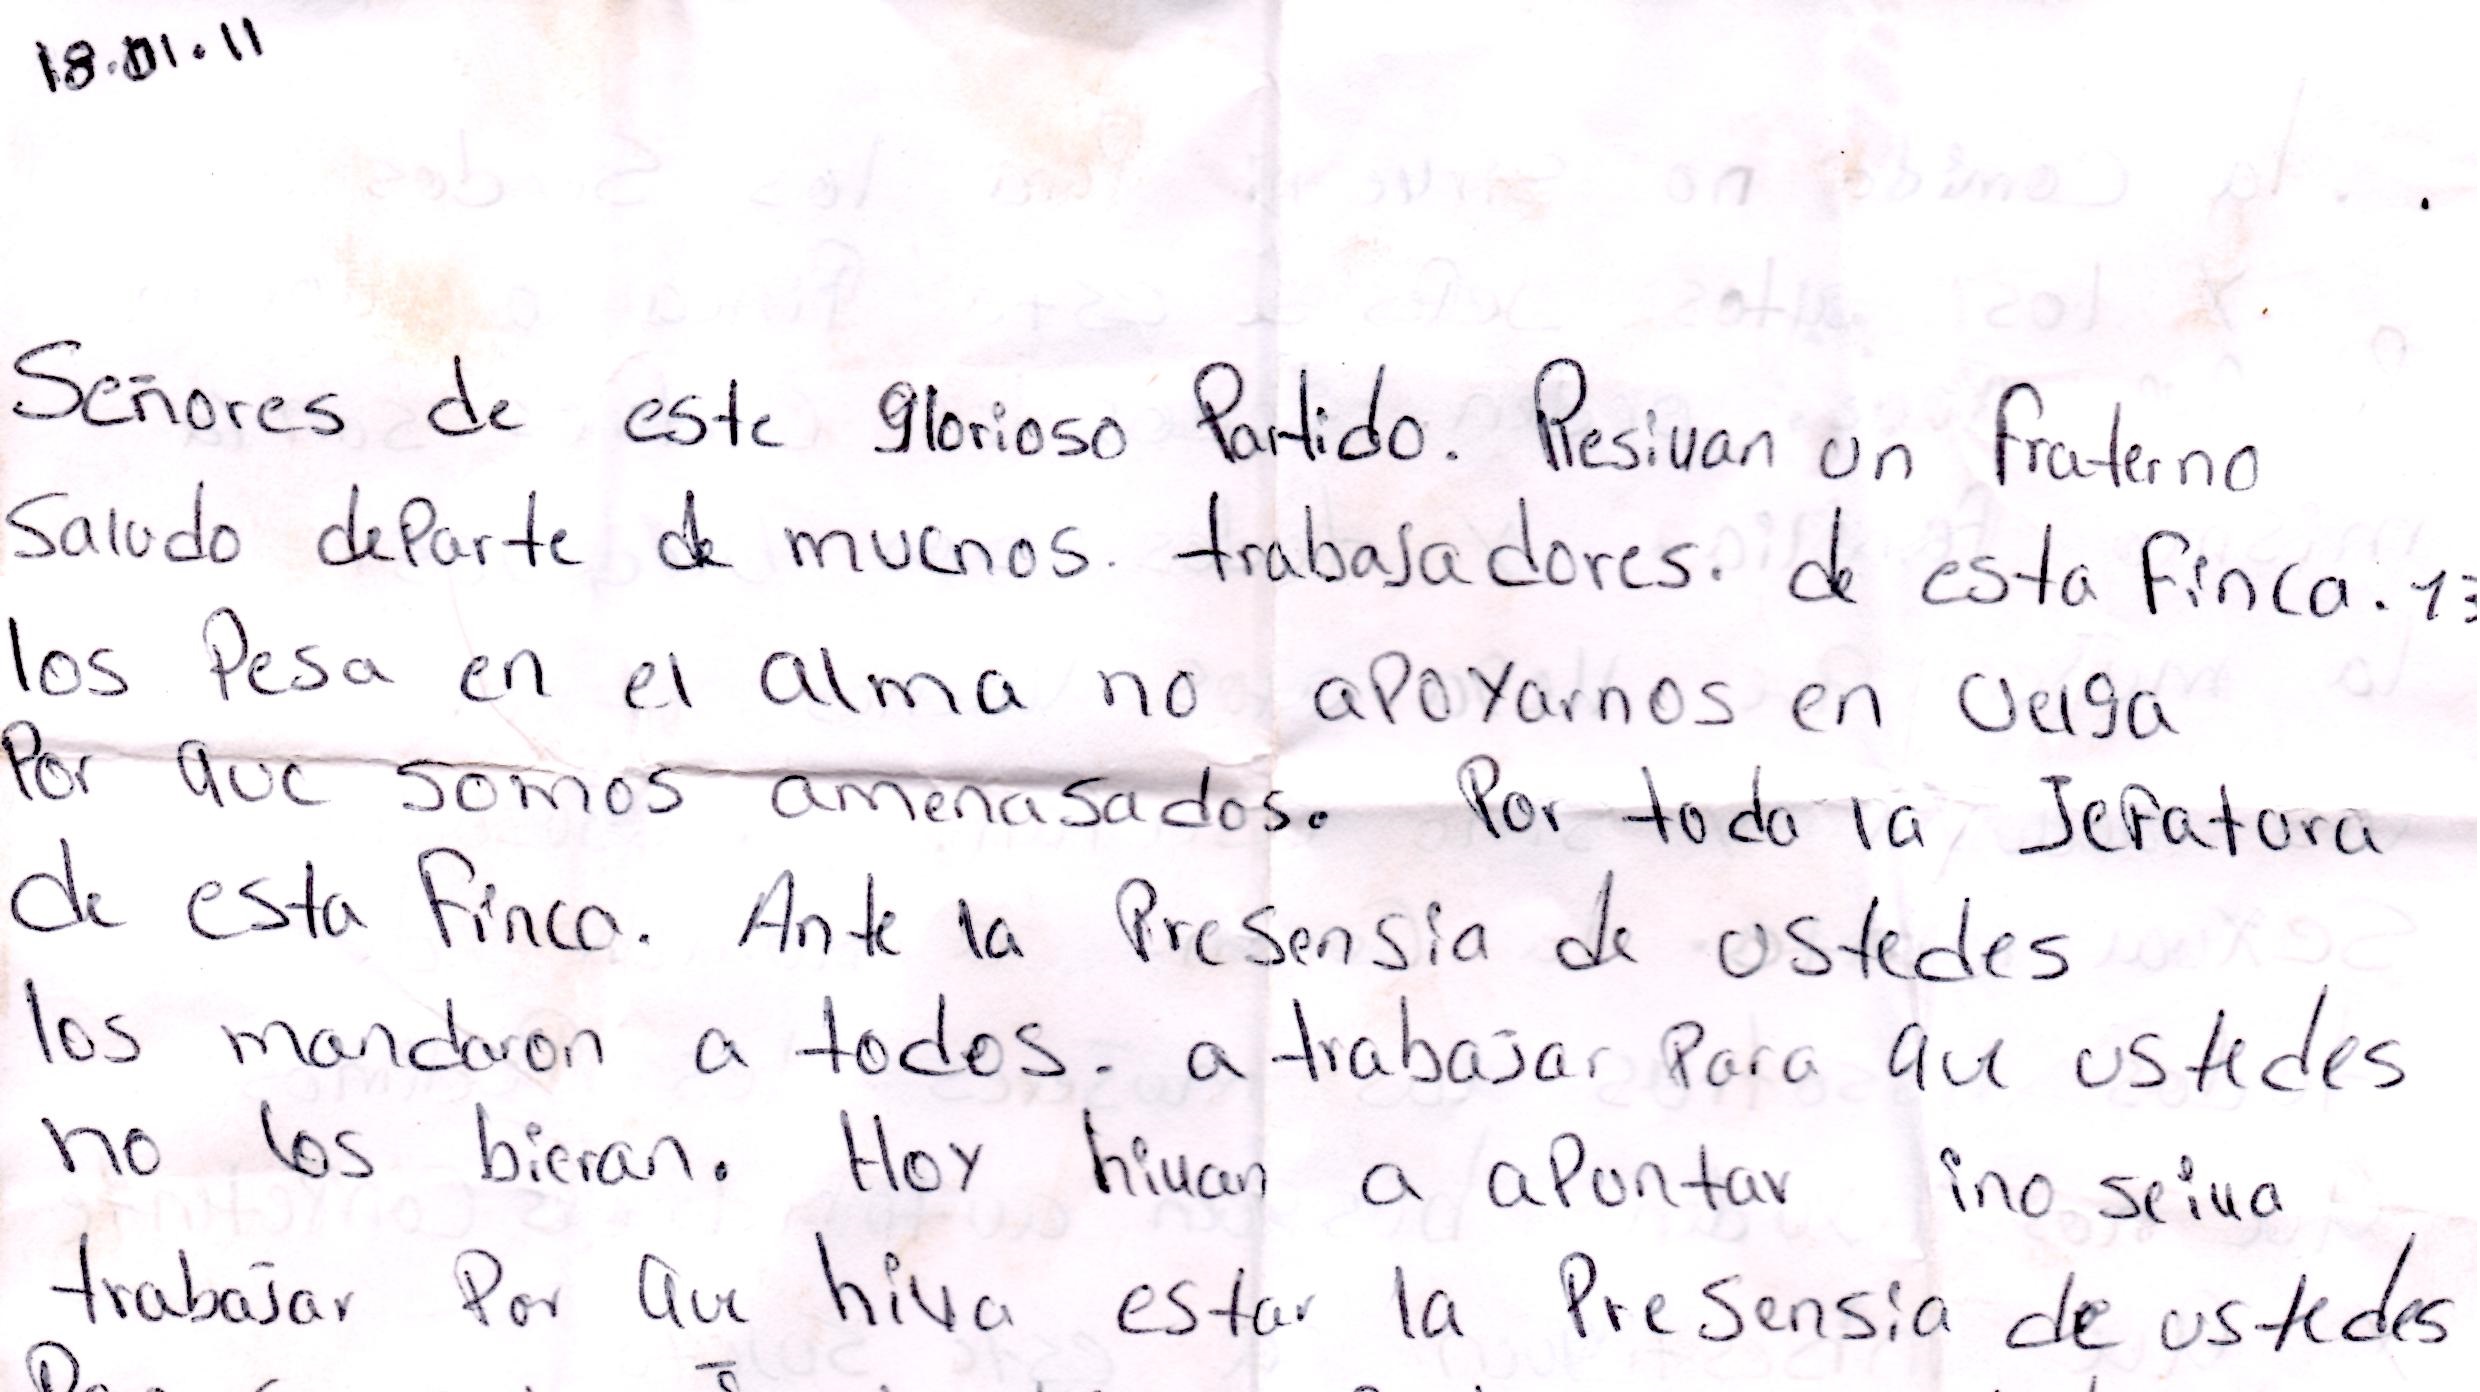 18.01.11
Señores de este glorioso Partido. Resivan un fraterno
Saludo departe de muchos. trabajadores. de esta finca. 13
los Pesa en el alma no apoyarnos en uelga
Por que somos amenasados. Por toda la Jefatura
de esta finca. Ante la Presensia de ustedes
los mandaron a todos. a trabajar Para que ustedes
no los bieran. Hoy hivan a apuntar ino seiva
trabajar Por que hiva estar la Presensia de ustedes